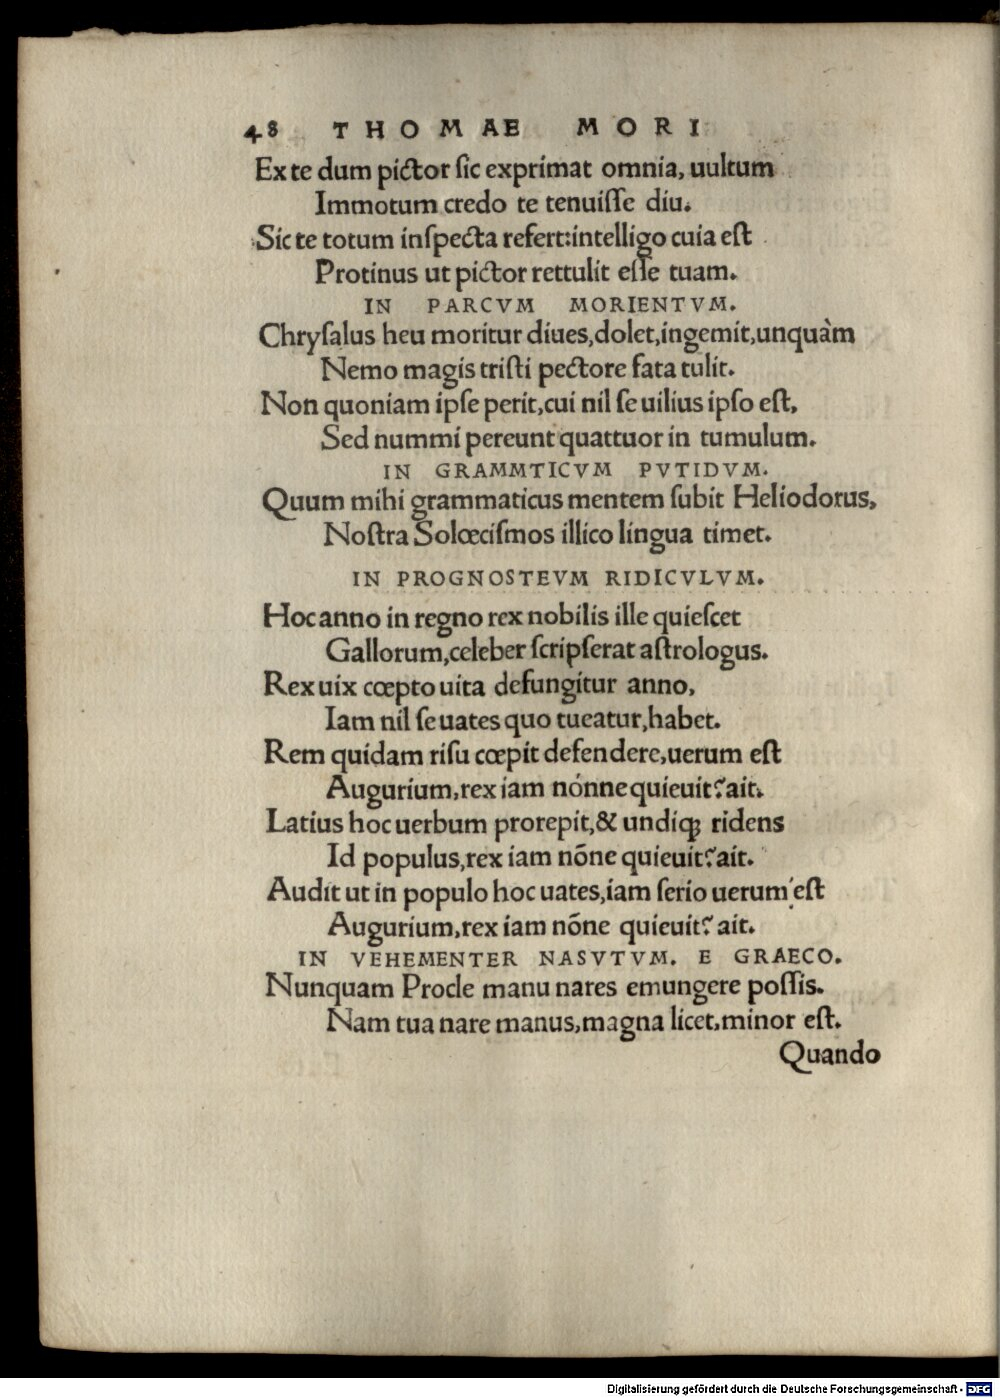 48 THOMAE MORI
Ex te dum pictor ſic exprimat omnia, uultum
Immotum credo te tenuiſſe diu.
Sic te totum inſpecta refert:intelligo cuia eſt
Protinus ut pictor rettulit eſſe tuam.
IN PARCVM MORIENTVM.
Chryſalus heu moritur diues,dolet,ingemit,unquàm
Nemo magis triſti pectore fata tulit.
Non quoniam ipſe perit,cui nil ſe uilius ipſo eſt,
Sed nummi pereunt quattuor in tumulum.
IN GRAMMTICVM PVTIDVM.
Quum mihi grammaticus mentem ſubit Heliodorus,
Noſtra Solœciſmos illico lingua timet.
IN PROGNOSTEVM RIDICVLVM.
Hoc anno in regno rex nobilis ille quieſcet
Gallorum,celeber ſcripſerat aſtrologus.
Rex uix cœpto uita defungitur anno,
Iam nil ſe uates quo tueatur,habet.
Rem quidam riſu cœpit defendere,uerum eſt
Augurium,rex iam nónne quieuit?ait.
Latius hoc uerbum prorepit,& undiqꝫ ridens
Id populus,rex iam nõne quieuit?ait.
Audit ut in populo hoc uates,iam ſerio uerum eſt
Augurium,rex iam nõne quieuit? ait.
IN VEHEMENTER NASVTVM. E GRAECO.
Nunquam Procle manu nares emungere poſſis.
Nam tua nare manus,magna licet,minor eſt.
Quando
Digitalisierung gefördert durch die Deutsche Forschungsgemeinschaft - DFG